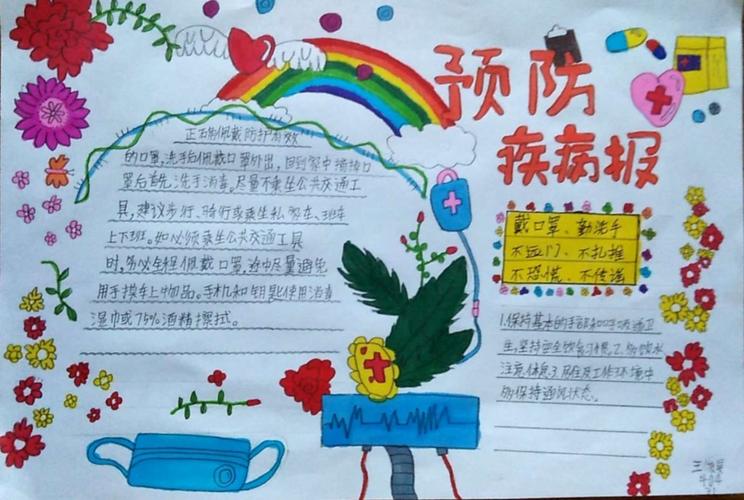 预防
疾病报
正确佩戴防护有效
的口罩,洗手后佩戴口罩外出,回到家中摘掉口
罩后首先洗手消毒。尽量不乘坐公共交通工
具,建议步行、骑行或乘坐私家车、班车
上下班。如必须乘坐公共交通工具
时,务必全程佩戴口罩,途中尽量避免
用手摸车上物品。手机和钥匙使用消毒
湿巾或75%酒精擦拭。
戴口罩、勤洗手
不远门、不扎推
不恐慌、不传谣
1.保持基本的手部和呼吸道卫
生,坚持安全饮食习惯,2.多饮水
注意休息,3.居住及工作环境中
多保持通风状态。